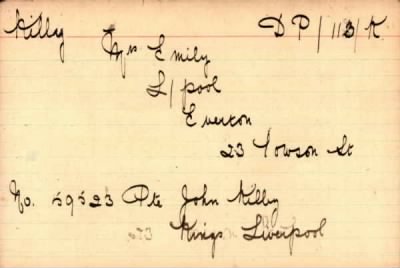 Kilby DP/113/K
Mrs Emily
L/pool
Everton
23 Towson St
No. 59523 Pte John Kilby
Kings Liverpool